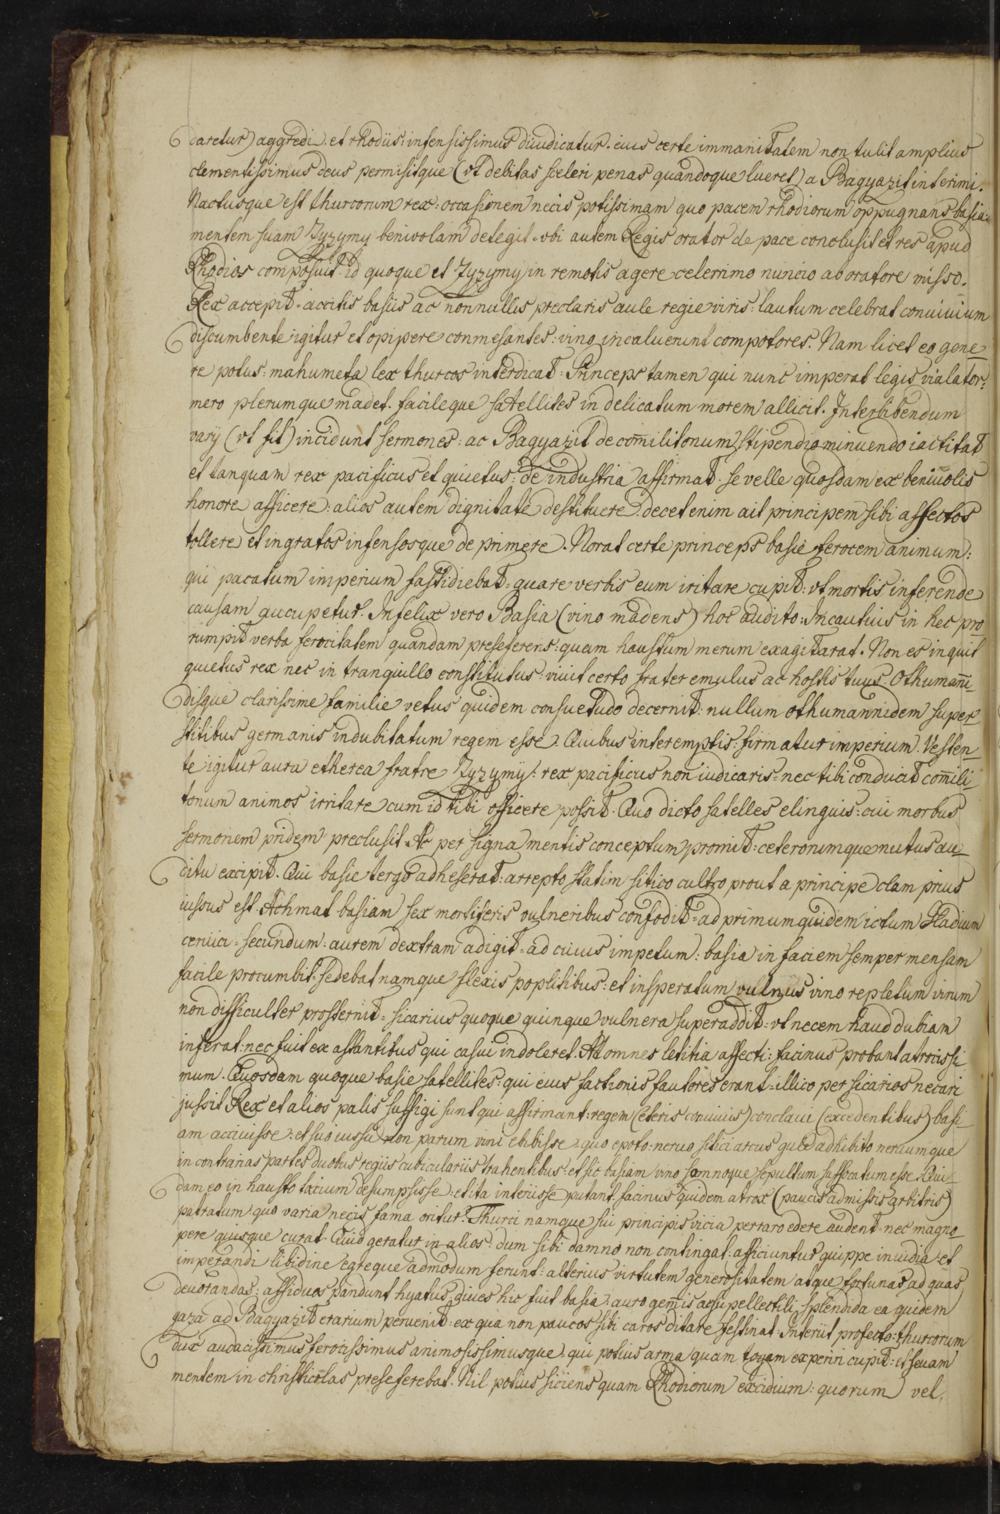 daretur) aggredi. et rhodiis: infensissimus diiudicatur. eius certe immanitatem non tulit amplius
clementissimus deus permisitque (vt debitas sceleri penas quandoque lueret) a Bagyazit interimi.
Nactusque est thurcorum rex: occasionem necis potissimam quo pacem rhodiorum oppugnans basia:
mentem suam Zyzymy benivolam detegit. vbi autem Regis orator de pace conclusit et res apud
Rhodios composuit: id quoque et Zyzymy in remotis agere celerrimo nuncio ab oratore misso.
Rex accepit. accitis basiis ac nonnullis preclaris aule regie viris: lautum celebrat conuiuium
discumbente igitur et opipere conmesantes: vino incaluerunt compotores. Nam licet eo gene
re potus: mahumeta lex thurcos interdicat: Princeps tamen qui nunc imperat legis uialator:
mero plerumque madet. facileque satellites in delicatum morem allicit. Interbibendum
varij (vt fit) incidunt sermones: ac Bagyazit de com̄ilitonum stipendio minuendo iactitat
et tanquam rex pacificus et quietus: de industria affirmat. se velle quosdam ex beniuolis
honore afficere: alios autem dignitate destituere. decet enim ait principem sibi affectos
tollere et ingratos infensosque de primere. Norat certe princeps basie ferocem animum:
qui pacatum imperium fastidiebat: quare verbis eum iritare cupit: vt mortis inferende
causam aucupetur. Infelix vero Basia (vino madens) hoc audito: Incautius in hec pro
rumpit verba ferocitatem quandam preseferens: quam haustum merum exagitarat. Non es inquit
quietus rex nec in tranquillo constitutus: viuit certo frater emulus ac hostis tuus Othuman̄i
disque clarissime familie vetus quidem consuetudo decernit: nullum othumannidem super
stitibus germanis indubitatum regem esse. Quibus interemptis: firmatur imperium. Vesten
te igitur aura etherea fratre Zyzymy: rex pacificus non iudicaris: nec tibi conducit com̄ili
tonum animos irritare cum id tibi officere possit. Quo dicto satelles elinguis: cui morbus
sermonem pridem preclusit Ac per signa mentis conceptum promit: ceterorumque nutus au
ditu excipit. Qui basie tergo adheserat: arrepto statim sitico cultro prout a principe clam prius
iussus est Achmat basiam sex mortiferis vulneribus confodit: ad primum quidem ictum Gladium
ceruici: secundum: aurem dextram adigit: ad cuius impetum: basia in faciem semper mensam
facile procumbit: sedebat namque flexis poplitibus: et insperatum vulnus vino repletum virum
non difficulter prosternit: sicarius quoque quinque vulnera superaddit: vt necem haud dubiam
inferat: nec fuit ex astantibus qui casui indoleret. At omnes letitia affecti: facinus probant atrocissi
mum. Quosdam quoque basie satellites: qui eius factionis fautores erant: illico per sicarios necari
jussit Rex et alios palis suffigi sunt qui affirmant: regem (ceteris conuiuis) conclaui (excedentibus) basi
am acciuisse: et suo iussu non parum vini ebibisse: quo epoto: neruo sitici arcus gule adhibito neruumque
in contrarias partes duobus regiis cubiculariis trahentibus: et sic basiam vino somnoque sepultum suffocatum esse. Qui
dam eo in hausto toxicum absumpsisse: et ita interiisse putant. facinus quidem atrox (paucis admissis arbitris)
patratum quo varia necis fama oritur. Thurci namque sui principis vicia perraro edere audent: nec magno
pere quisque curat Quid geratur in alios: dum sibi damno non contingat: afficiuntur quippe inuidia et
imperandi libidine egreque admodum ferunt: alterius virtutem generositatem atque fortunas ad quas
deuorandas: assiduos pandunt hyatus diues hic fuit basia: auro gem̄is ac supellectili splendida ea quidem
gaza ad Bagyazit erarium peruenit: ex qua non paucos sibi caros ditare festinat. Interiit profecto: thurcorum
dux audacissimus ferocissimus animosissimusque. qui potius arma quam togam experiri cupit: et seuam
mentem in christicolas preseferebat. Nil potius siciens quam Rhodiorum excidium: quorum vel